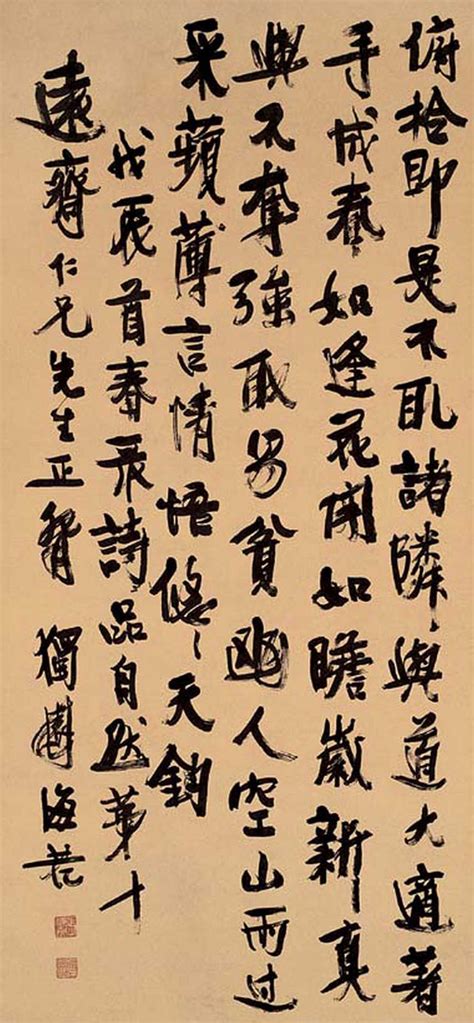 俯拾即是不取諸隣與道大適著
手成春如逢花開如瞻歲新真
與不奪強取易貧幽人空山雨过
采蘋薄言情悟悠〻天鈞
戊辰首春录詩品自然第十
遠齋仁兄先生正 獨樹海